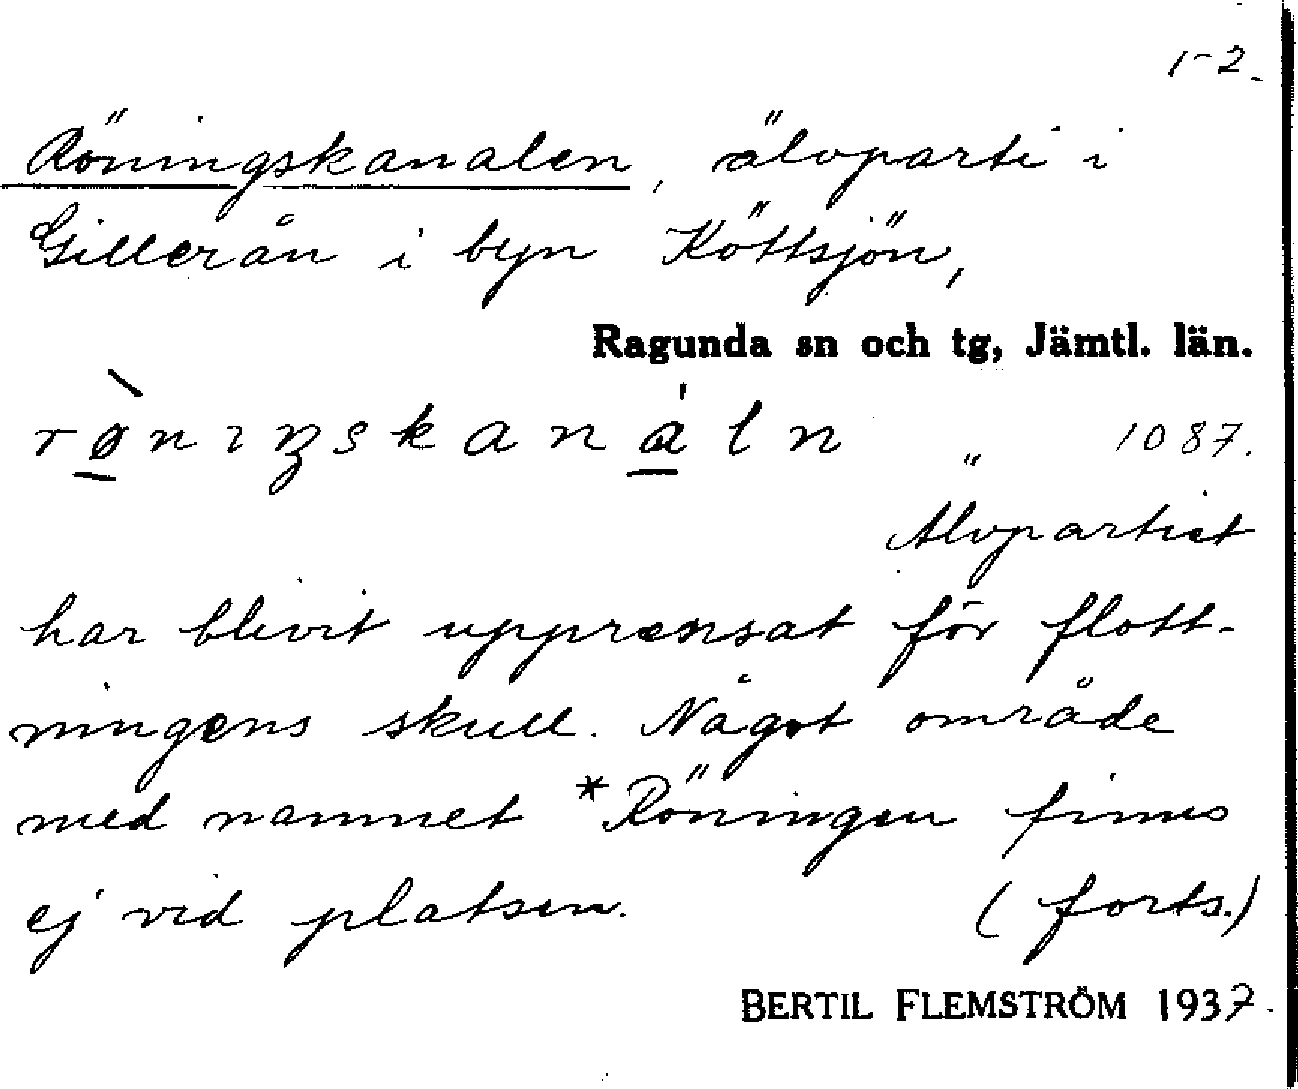 1-2.
Röningskanalen, älvparti i
Gillerån i byn Köttsjön,
Ragunda sn och tg, Jämtl. län.
rø̠̀nıŋskaná̠ln „ 1087.
Älvpartiet
har blivit upprensat för flott-
ningens skull. Något område
med namnet *Röningen finnes
ej vid platsen. (forts.)
BERTIL FLEMSTRÖM 1937.